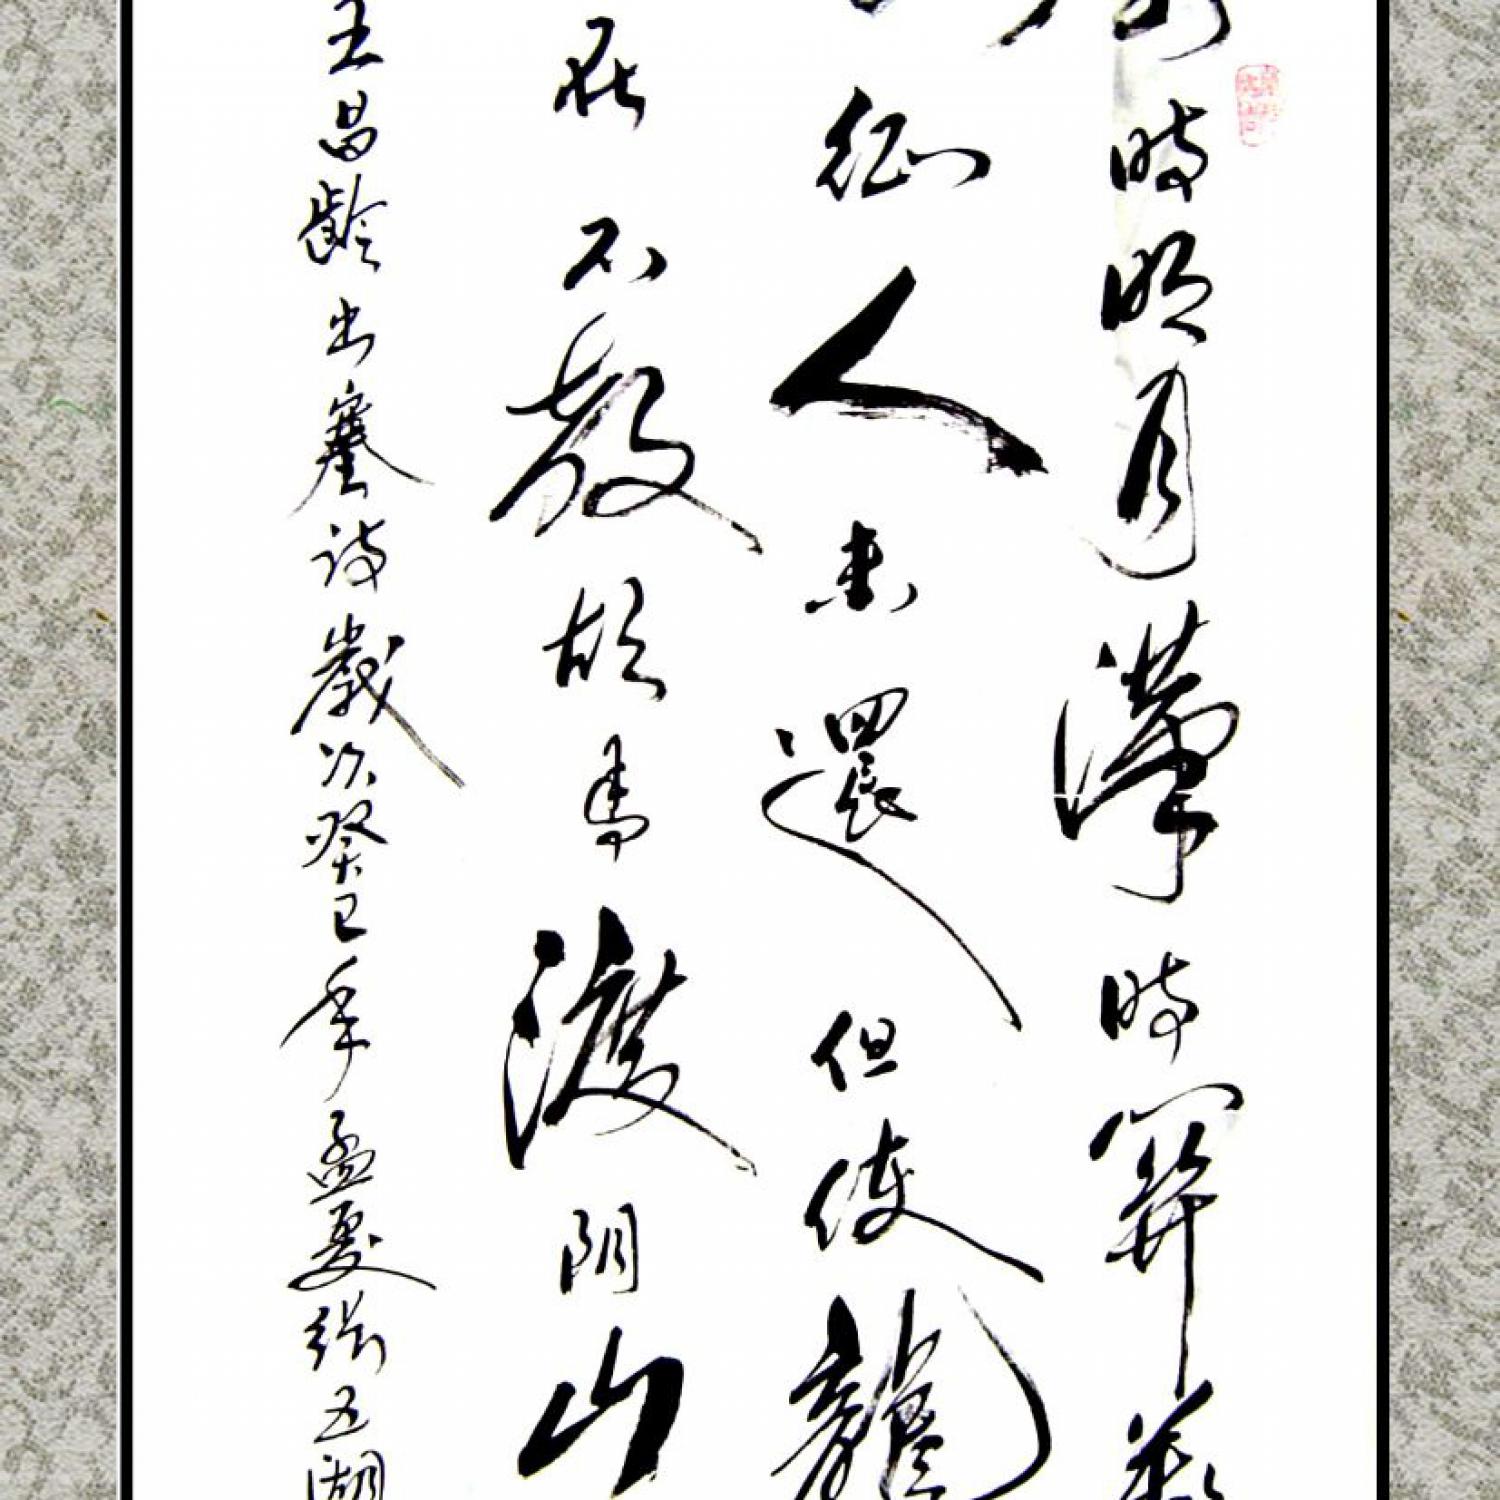 時明月漢時關萬
征人未還但使龍
在不教胡馬渡阴山
王昌齡出塞诗歲次癸巳年孟夏五湖